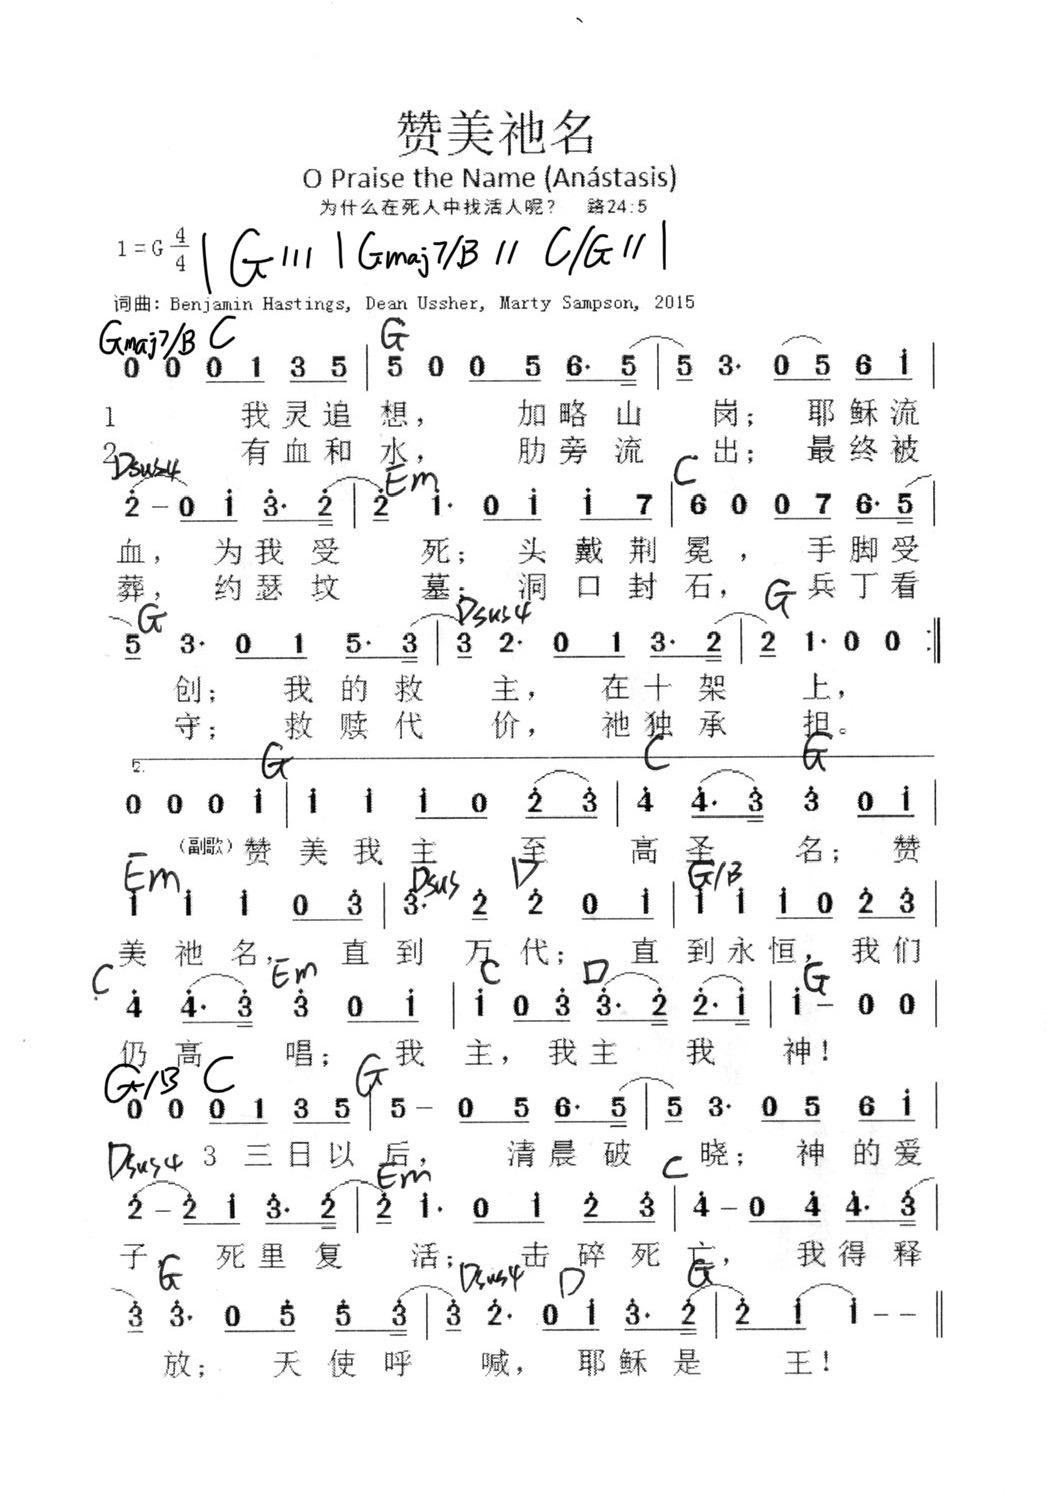 赞美祂名
O Praise the Name (Anástasis)
为什么在死人中找活人呢？ 路24:5
1=G 4/4 | G /// | Gmaj7/B // C/G // |
词曲: Benjamin Hastings, Dean Ussher, Marty Sampson, 2015
Gmaj7/B C G
0 0 0 1 3 5 | 5 0 0 5 6· 5 | 5 3· 0 5 6 i |
1 我灵追想， 加略山岗； 耶稣流
2 有血和水， 肋旁流出； 最终被
Dsus4 Em C
2 - 0 i 3· 2 | 2 1· 0 i i 7 | 6 0 0 7 6· 5 |
血， 为我受死； 头戴荆冕， 手脚受
葬， 约瑟坟墓； 洞口封石， 兵丁看
G Dsus4 G
5 3· 0 1 5· 3 | 3 2· 0 1 3· 2 | 2 1· 0 0 :||
创； 我的救主， 在十架上，
守； 救赎代价， 祂独承担。
2. G C G
0 0 0 i | i i i 0 2 3 | 4 4· 3 3 0 i |
（副歌）赞美我主至高圣名； 赞
Em Dsus D G/B
i i i 0 3 | 3· 2 2 0 i | i i i 0 2 3 |
美祂名， 直到万代； 直到永恒， 我们
C Em C D G
4 4· 3 3 0 i | i 0 3 3· 2 2· i | i - 0 0 |
仍高唱； 我主， 我主我神！
G/B C G
0 0 0 1 3 5 | 5 - 0 5 6· 5 | 5 3· 0 5 6 i |
3 三日以后， 清晨破晓； 神的爱
Dsus4 Em C
2 - 2 i 3· 2 | 2 i· 0 i 2 3 | 4 - 0 4 4· 3 |
子， 死里复活； 击碎死亡， 我得释
G Dsus4 D G
3 3· 0 5 5 3 | 3 2· 0 i 3· 2 | 2 i i - - ||
放； 天使呼喊， 耶稣是王！